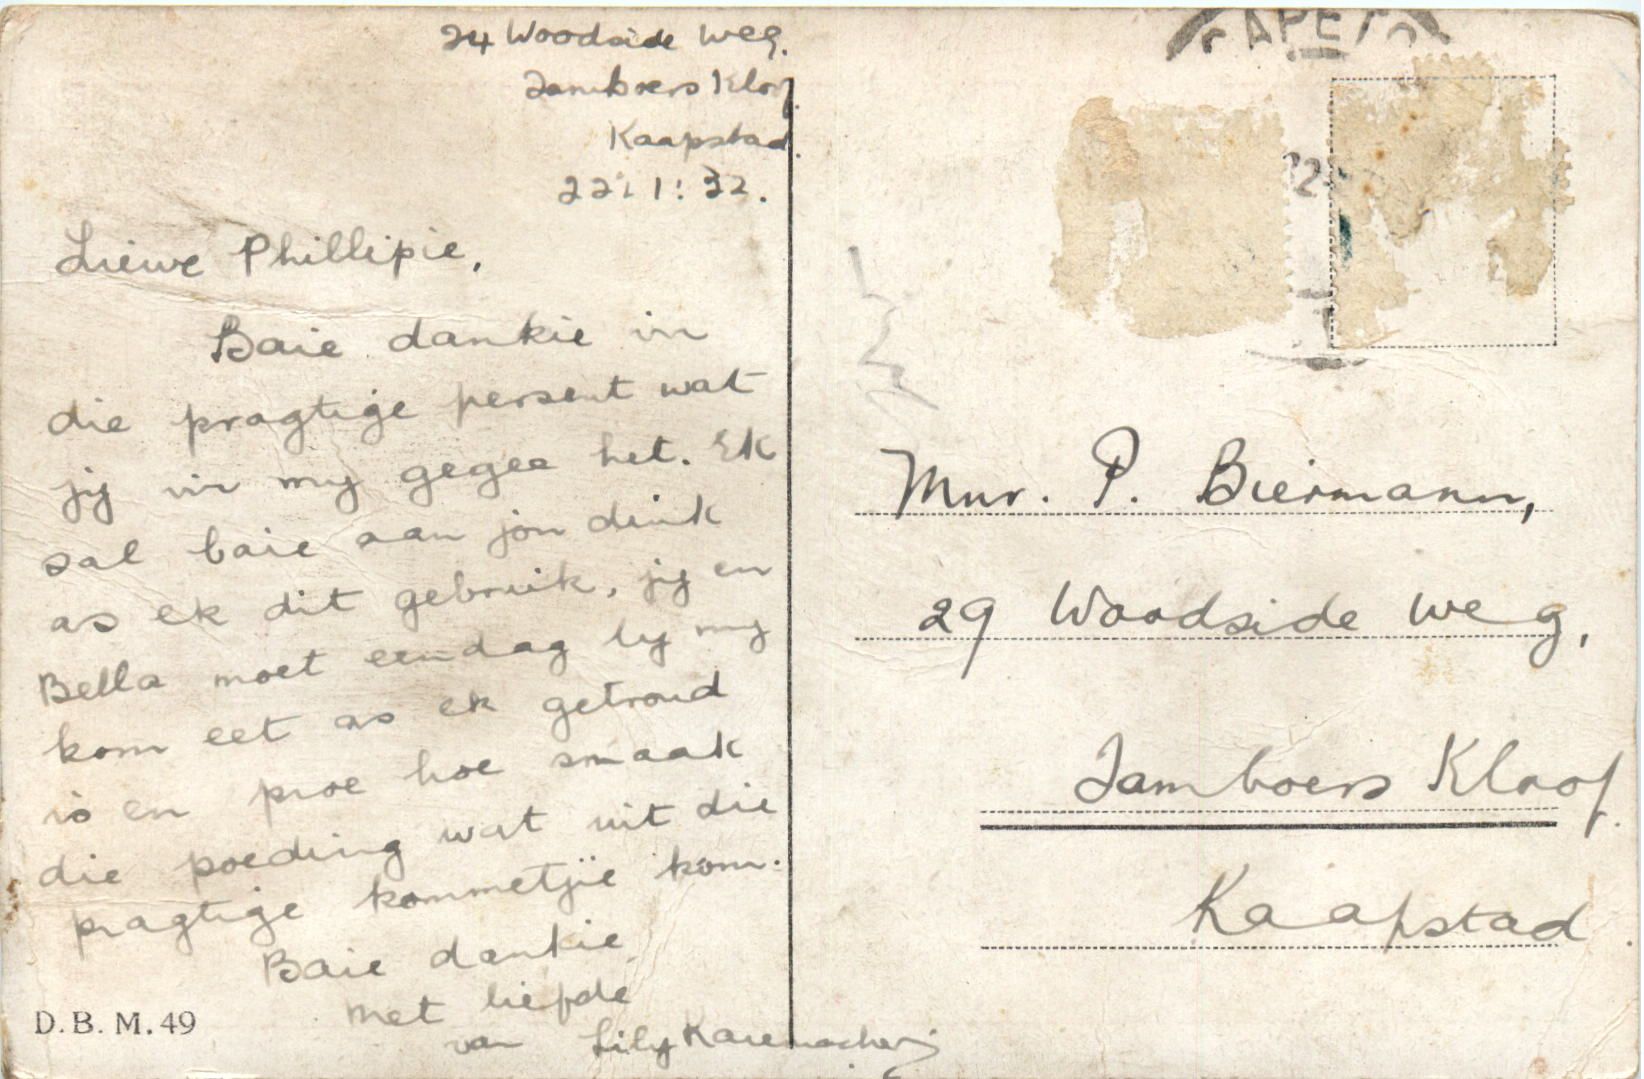 24 Woodside Weg.
Jamboers Kloof.
Kaapstad.
22: 1: 32.
Liewe Phillipie,
Baie dankie vir
die pragtige persent wat
jy vir my gegee het. Ek
sal baie aan jou dink
as ek dit gebruik, jy en
Bella moet eendag by my
kom eet as ek getroud
is en proe hoe smaak
die poeding wat uit die
pragtige kommetjie kom.
Baie dankie
met liefde
van Lily
D. B. M. 49
Mnr. P. Biermann,
29 Woodside weg,
Jamboers Kloof.
Kaapstad.